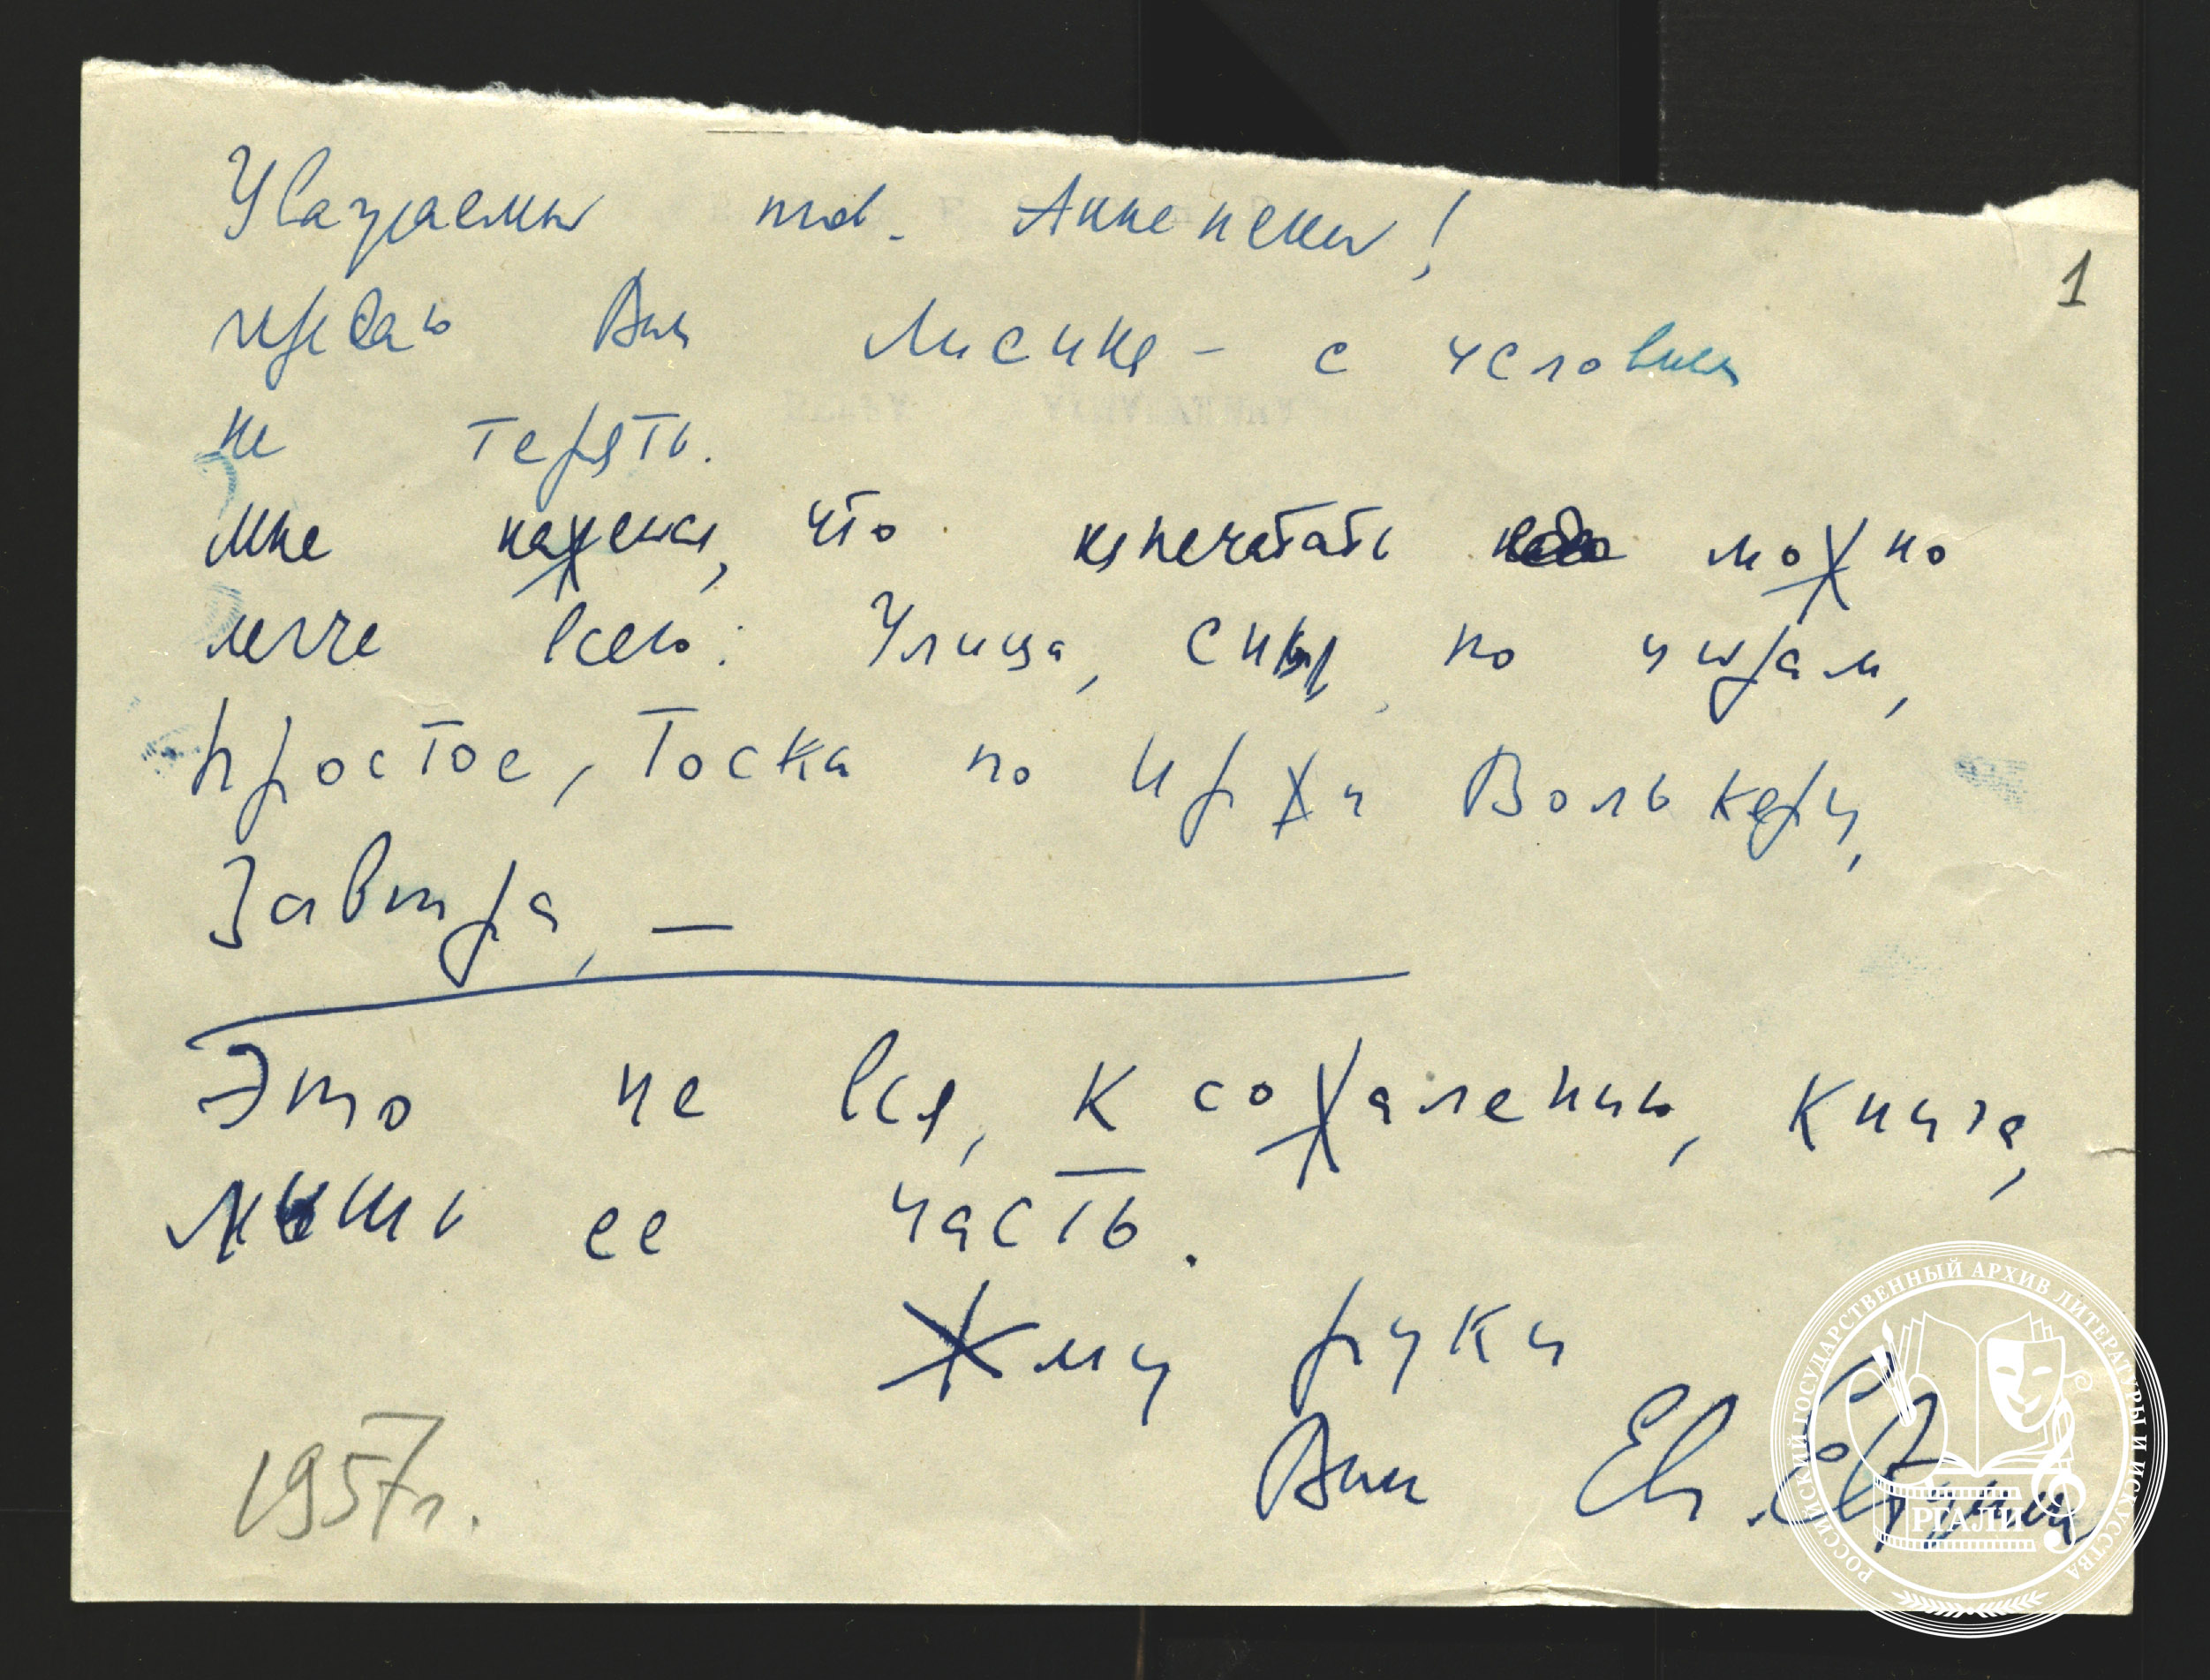 Уважаемый тов. Анненский!
передаю Вам Лисичке – с условием
не терять.
Мне кажется, что напечатать можно
легче всего: Улица, по
Простое, Тоска по Иржи Волькеру,
Завтра, —
Это не вся, к сожалению, книга,
лишь ее часть.
Жму руку
Ваш Евг.
1957 г.
1
РОССИЙСКИЙ ГОСУДАРСТВЕННЫЙ АРХИВ ЛИТЕРАТУРЫ И ИСКУССТВА
РГАЛИ